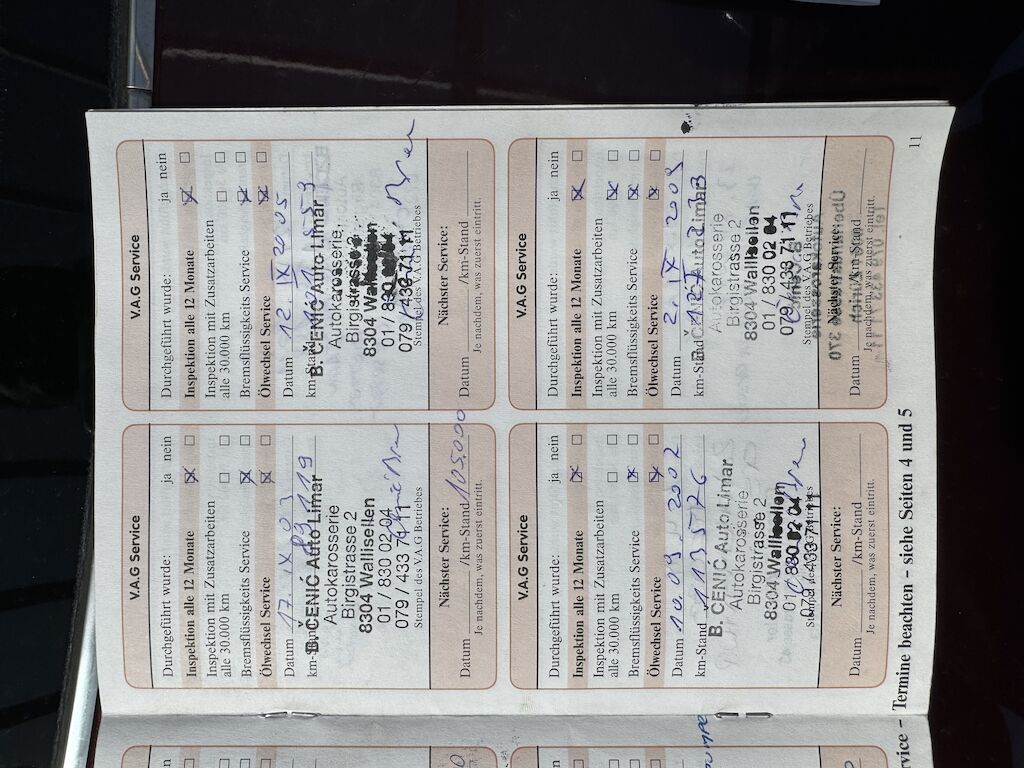 V.A.G Service
Durchgeführt wurde: ja nein
Inspektion alle 12 Monate
Inspektion mit Zusatzarbeiten
alle 30.000 km
Bremsflüssigkeits Service
Ölwechsel Service
Datum 17. IX 03
km-Stand 89 119
B. ČENIĆ Auto Limar
Autokarosserie
Birgistrasse 2
8304 Wallisellen
01 / 830 02 04
079 / 433 71 11
Stempel des V.A.G Betriebes
Nächster Service:
Datum /km-Stand 105.000
Je nachdem, was zuerst eintritt.
V.A.G Service
Durchgeführt wurde: ja nein
Inspektion alle 12 Monate
Inspektion mit Zusatzarbeiten
alle 30.000 km
Bremsflüssigkeits Service
Ölwechsel Service
Datum 12. IX 2005
km-Stand
B. ČENIĆ Auto Limar
Autokarosserie
Birgistrasse 2
8304 Wallisellen
01 / 830
079 / 433 71 11
Stempel des V.A.G Betriebes
Nächster Service:
Datum /km-Stand
Je nachdem, was zuerst eintritt.
V.A.G Service
Durchgeführt wurde: ja nein
Inspektion alle 12 Monate
Inspektion mit Zusatzarbeiten
alle 30.000 km
Bremsflüssigkeits Service
Ölwechsel Service
Datum 10.09 2007
km-Stand 113576
B. ČENIĆ Auto Limar
Autokarosserie
Birgistrasse 2
8304 Wallisellen
01 / 830 02 04
079 / 433 71 11
Nächster Service:
Datum /km-Stand
Je nachdem, was zuerst eintritt.
V.A.G Service
Durchgeführt wurde: ja nein
Inspektion alle 12 Monate
Inspektion mit Zusatzarbeiten
alle 30.000 km
Bremsflüssigkeits Service
Ölwechsel Service
Datum 2. IX 2009
km-Stand
ČENIĆ Auto Limar
Autokarosserie
Birgistrasse 2
8304 Wallisellen
01 / 830 02 04
079 / 433 71 11
Stempel des V.A.G Betriebes
Nächster Service:
Datum /km-Stand
Je nachdem, was zuerst eintritt.
rvice – Termine beachten – siehe Seiten 4 und 5
11